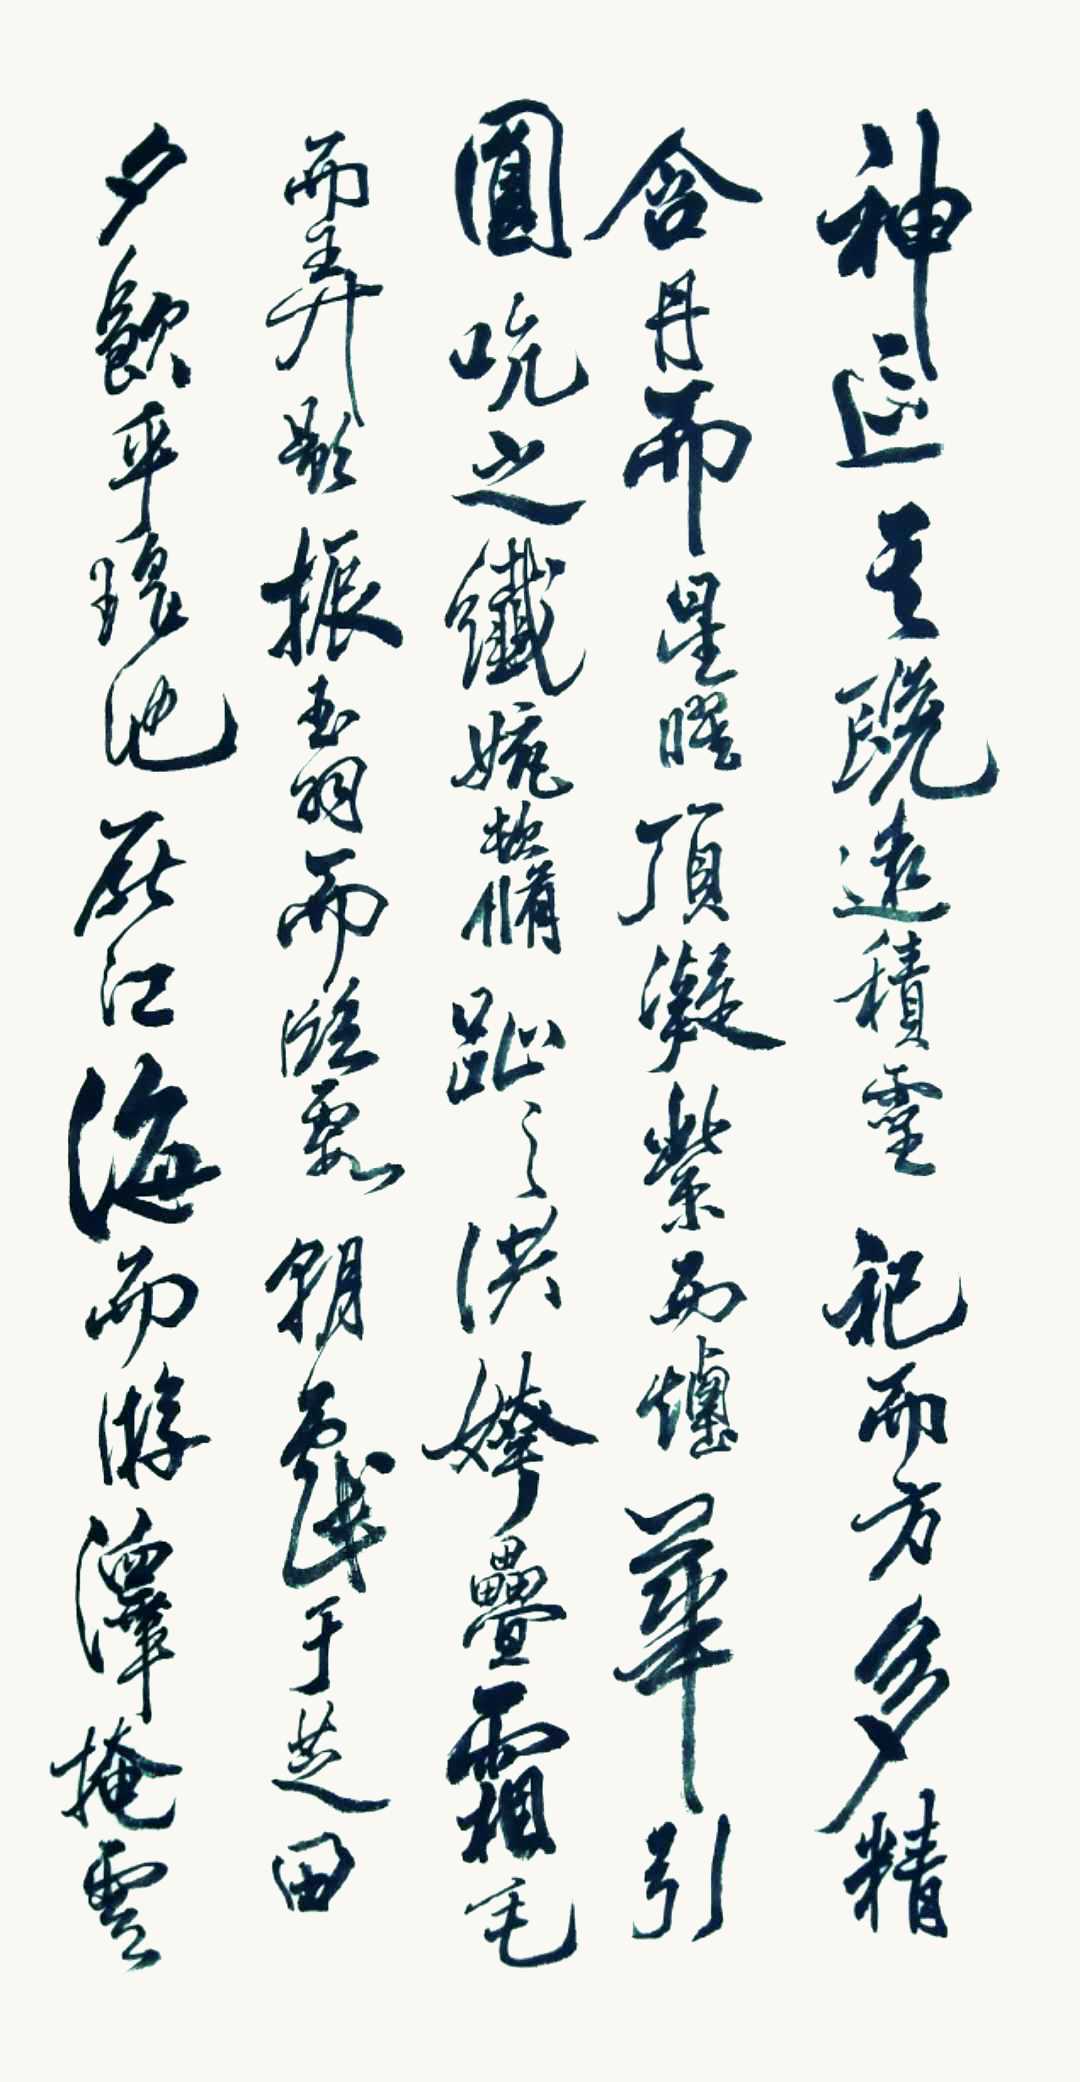 神區其既遠積靈祀而方多精
含丹而星曜頂凝紫而煙華引
圓吭之纖婉頓脩趾之洪姱疊霜毛
而弄影振玉羽而臨霞朝戲于芝田
夕飲乎瑤池厭江海而游澤掩雲